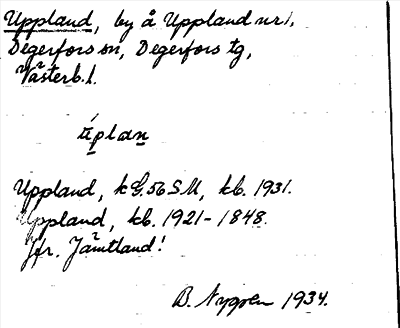 Uppland, by å Uppland nr 1,
Degerfors sn, Degerfors tg,
Västerb. l.
úplan
Uppland, k G. 56 SU, kb. 1931.
Uppland, kb. 1921-1848.
Jfr. Jämtland!
B. Nygren 1934.